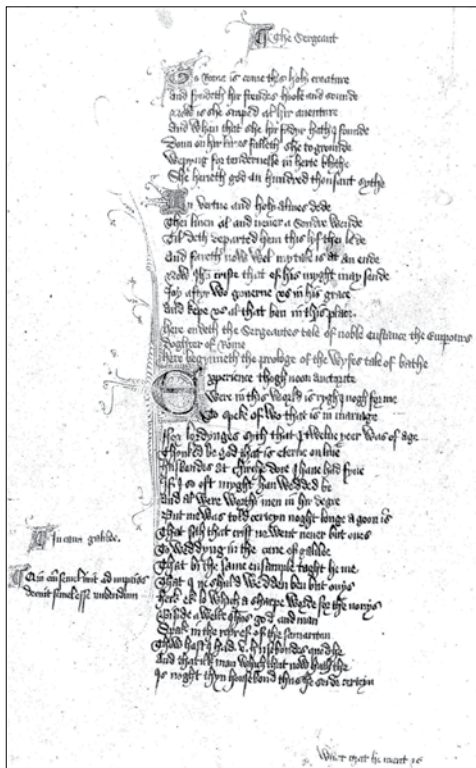 The Sergeant
To Rome is come this holy creature
And fyndeth hir frendes hoole and sounde
Now is she scaped al hir aventure
And whan that she hir fader hath yfounde
Doun on hir knees falleth she to grounde
Wepyng for tendernesse in herte blithe
She herieth god an hundred thousant sythe
In vertue and holy almes dede
Thei liven al and never a sondre wende
Til deth departed hem this lif thei lede
And fareth now wel my tale is at an ende
Now Ihu criste that of his myght may sende
Joy after wo governe us in his grace
And kepe us al that ben in this place
here endeth the Sergeantes tale of noble Custance the Empours
doghter of Rome
here begynneth the prologe of the Wyfes tale of bathe
Experience thogh noon auctorite
Were in this world is ryght ynogh for me
To speke of wo that is in mariage
ffor lordynges syth that I twelve yeer was of age
Thonked be god that is eterne on live
Husbondes at chirche dore I have had fyve
If I so oft myght han wedded be
And al were worthi men in hir degre
But me was told certeyn noght longe agoon is
That sith that crist ne went never but ones
To weddyng in the cane of galilee
That by the same ensample taght he me
That I ne shuld wedden ben but onys
Herk ek lo which a sharpe worde for the nonys
Biside a welle Ihus god and man
Spak in the repref of the samaritan
Thow hast yhad v. husbondes quod he
And that ilk man which that now hath the
Is noght thyn housbond thus he seide certeyn
In cana galilee.
What that he ment is